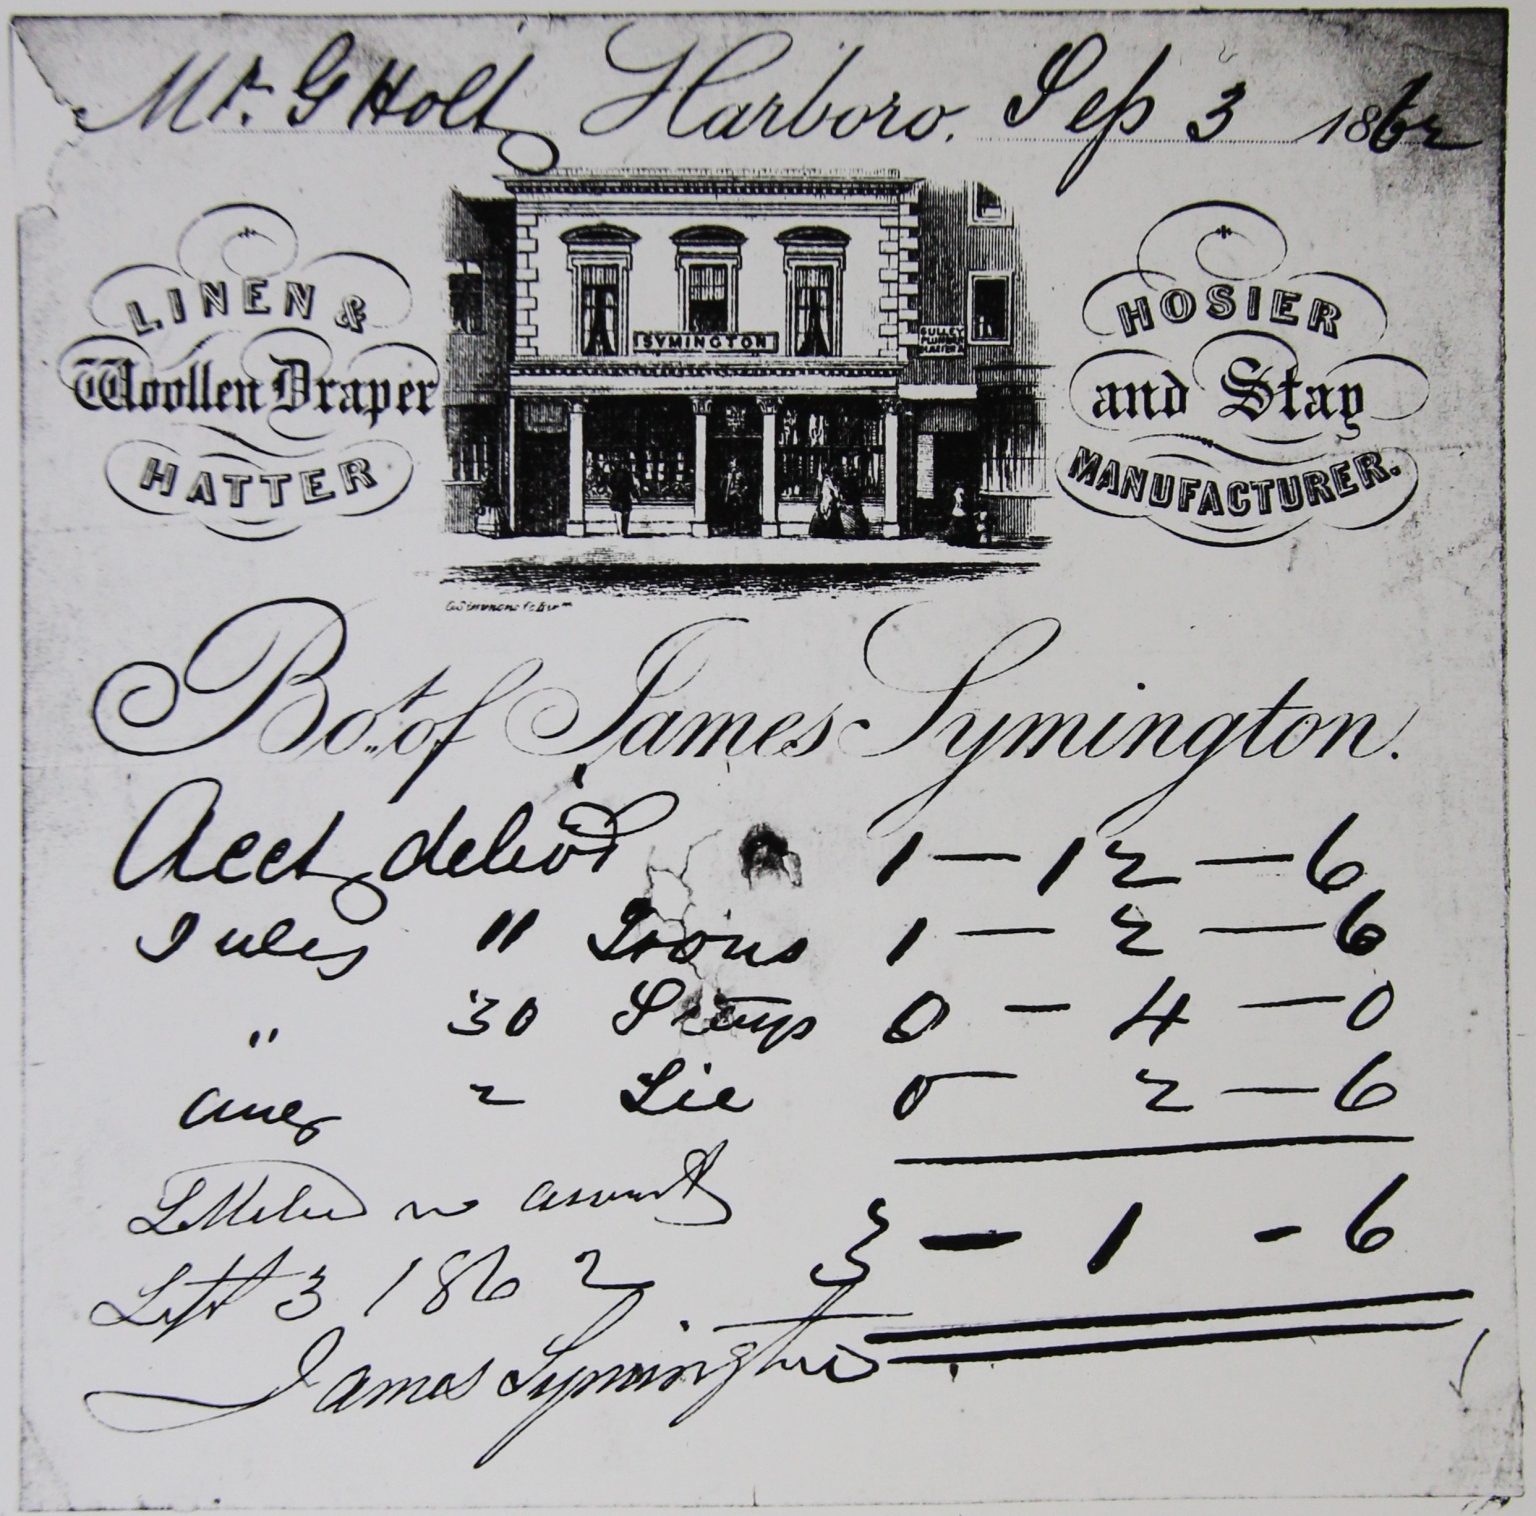 Mr. G Holt Harboro. Sep 3 1862
LINEN &
Woollen Draper
HATTER
SYMINGTON
GULLEY
PLUMBER
HOSIER
and Stay
MANUFACTURER.
Bot. of James Symington.
Acct delivd 1 — 12 — 6
July " Trous 1 — 2 — 6
" 30 0 — 4 — 0
Aug 2 Tie 0 — 2 — 6
Settled account 3 — 1 - 6
Sept 3 1862
James Symington